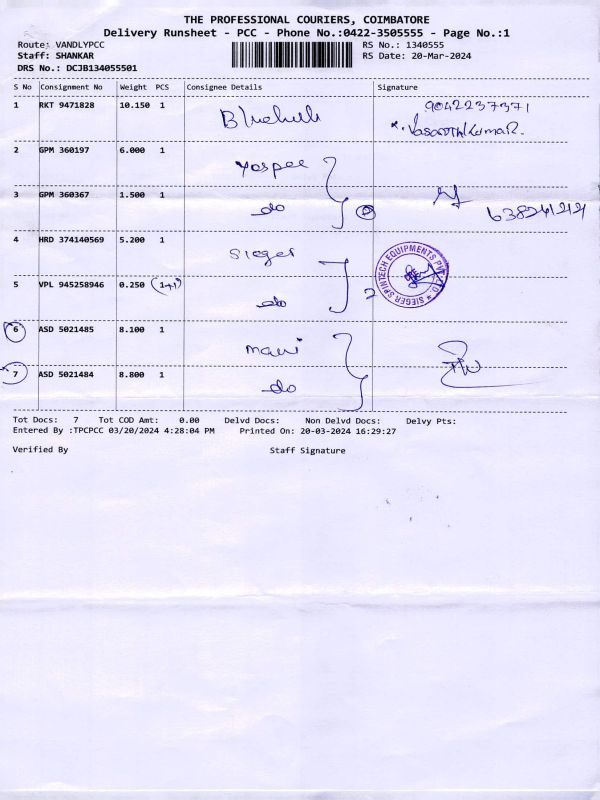 THE PROFESSIONAL COURIERS, COIMBATORE
Delivery Runsheet - PCC - Phone No.:0422-3505555 - Page No.:1
Route: VANDLYPCC RS No.: 1340555
Staff: SHANKAR RS Date: 20-Mar-2024
DRS No.: DCJB134055501
S No Consignment No Weight PCS Consignee Details Signature
1 RKT 9471828 10.150 1 9042237371
VasanthKumar.
2 GPM 360197 6.000 1
3 GPM 360367 1.500 1 do
4 HRD 374140569 5.200 1 Sieger
SIEGER SPINTECH EQUIPMENTS PVT. LTD.
5 VPL 945258946 0.250 (1+1) do 2
6 ASD 5021485 8.100 1
7 ASD 5021484 8.800 1 do
Tot Docs: 7 Tot COD Amt: 0.00 Delvd Docs: Non Delvd Docs: Delvy Pts:
Entered By :TPCPCC 03/20/2024 4:28:04 PM Printed On: 20-03-2024 16:29:27
Verified By Staff Signature